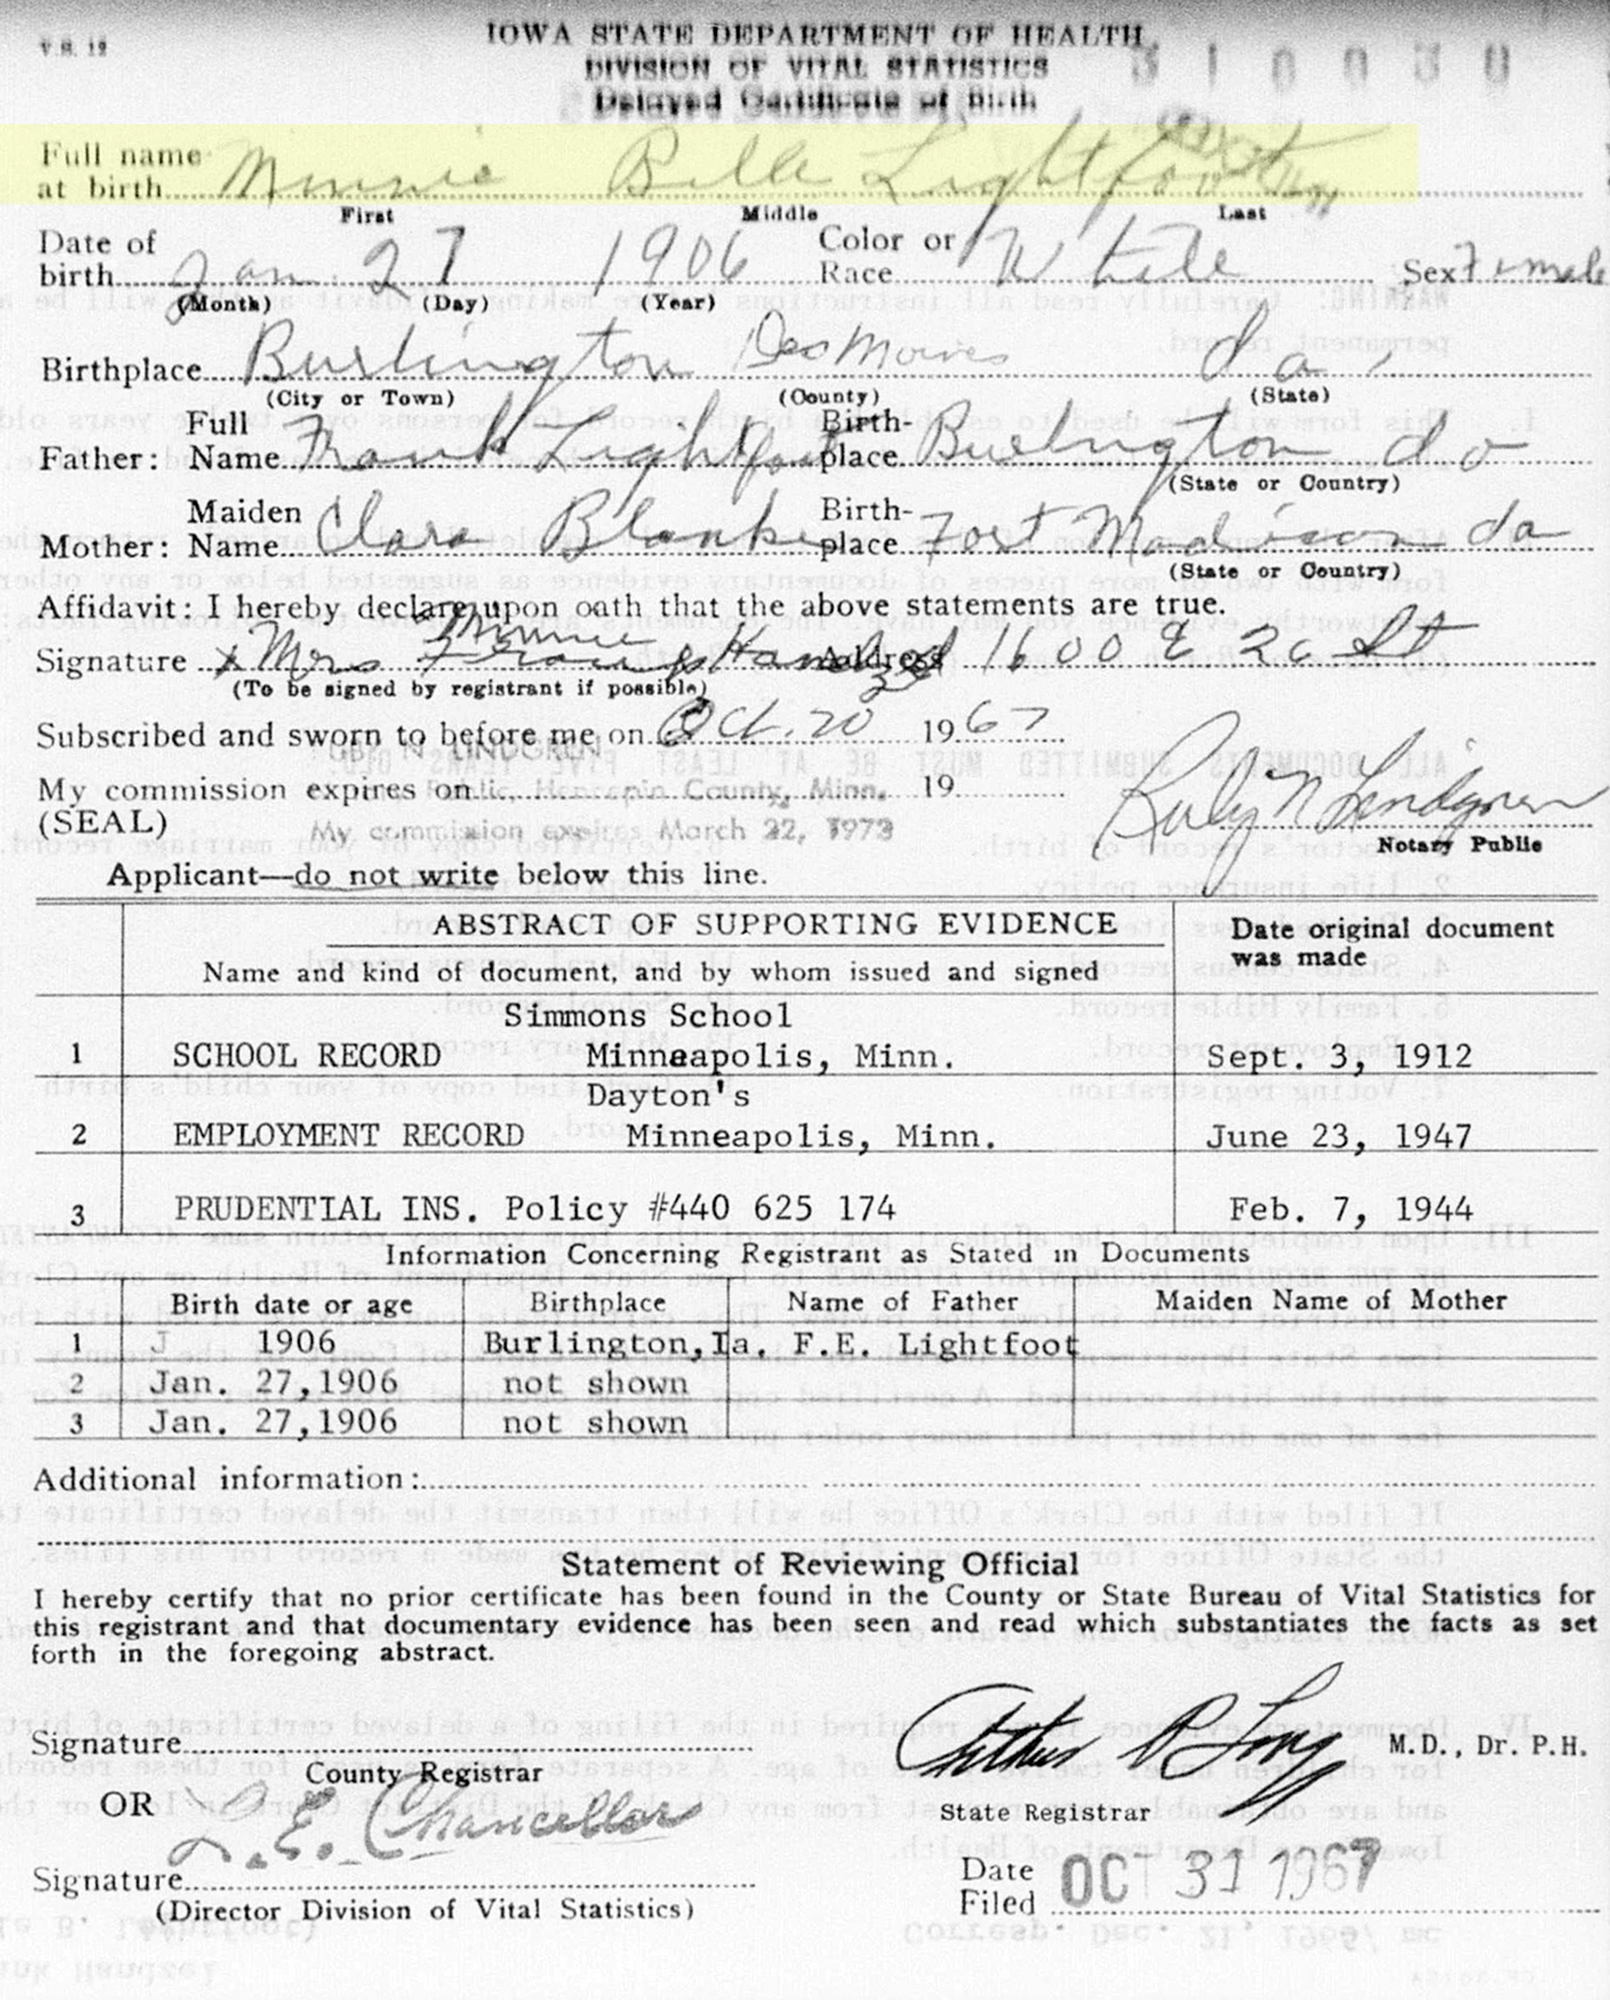 V.S. 12
IOWA STATE DEPARTMENT OF HEALTH
DIVISION OF VITAL STATISTICS
Delayed Certificate of Birth
Full name at birth Minnie Belle Lightfoot
First Middle Last
Date of birth Jan 27 1906 Color or Race White Sex Female
(Month) (Day) (Year)
Birthplace Burlington Des Moines Ia.
(City or Town) (County) (State)
Father: Full Name Frank Lightfoot Birthplace Burlington Io
(State or Country)
Mother: Maiden Name Clara Blank Birthplace Fort Madison Ia
(State or Country)
Affidavit: I hereby declare upon oath that the above statements are true.
Minnie
Signature x Mrs Frank Handzel Address 1600 E 26 St
(To be signed by registrant if possible)
Subscribed and sworn to before me on Oct. 20 1967
N LINDGREN
My commission expires on 19
Public, Hennepin County, Minn.
(SEAL) My commission expires March 22, 1973
Ruby N Lindgren
Notary Public
Applicant—do not write below this line.
ABSTRACT OF SUPPORTING EVIDENCE
Name and kind of document, and by whom issued and signed
Date original document was made
Simmons School
1 SCHOOL RECORD Minneapolis, Minn. Sept. 3, 1912
Dayton's
2 EMPLOYMENT RECORD Minneapolis, Minn. June 23, 1947
3 PRUDENTIAL INS. Policy #440 625 174 Feb. 7, 1944
Information Concerning Registrant as Stated in Documents
Birth date or age Birthplace Name of Father Maiden Name of Mother
1 J 1906 Burlington,Ia. F.E. Lightfoot
2 Jan. 27,1906 not shown
3 Jan. 27,1906 not shown
Additional information:
Statement of Reviewing Official
I hereby certify that no prior certificate has been found in the County or State Bureau of Vital Statistics for
this registrant and that documentary evidence has been seen and read which substantiates the facts as set
forth in the foregoing abstract.
Signature
County Registrar
Arthur P Long M.D., Dr. P.H.
State Registrar
OR
L. E. Chancellor
Signature
(Director Division of Vital Statistics)
Date Filed OCT 31 1967